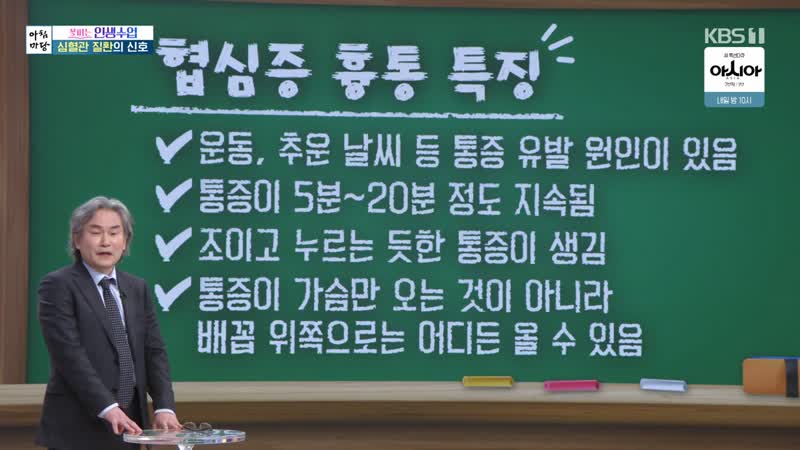 아침마당
빛나는 인생수업
심혈관 질환의 신호
KBS1
아시아
내일 밤 10시
협심증 흉통 특징
✔ 운동, 추운 날씨 등 통증 유발 원인이 있음
✔ 통증이 5분~20분 정도 지속됨
✔ 조이고 누르는 듯한 통증이 생김
✔ 통증이 가슴만 오는 것이 아니라
배꼽 위쪽으로는 어디든 올 수 있음